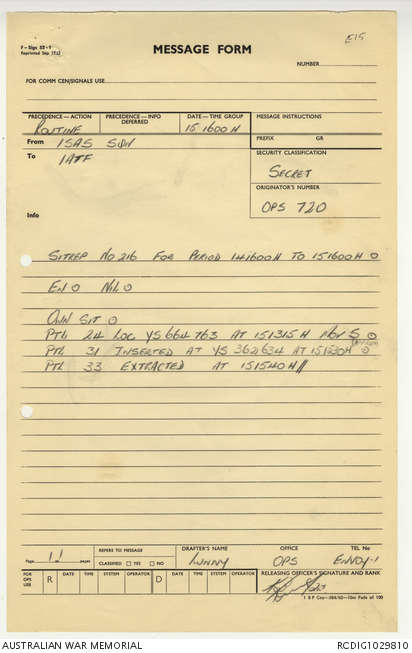 F-Sign 52-1
MESSAGE FORM
E15
NUMBER
FOR COMM CEN/SIGNALS USE
PRECEDENCE—ACTION
PRECEDENCE—INFO DEFERRED
DATE—TIME GROUP
MESSAGE INSTRUCTIONS
ROUTINE
15 1600 H
From 1SAS SQN
PREFIX GR
To 1ATF
SECURITY CLASSIFICATION
SECRET
ORIGINATOR'S NUMBER
Info
OPS 720
SITREP No 216 FOR PERIOD 141600H TO 151600H O
EN O NIL O
OWN SIT O
PTL 24 LOC YS 664 763 AT 151315H MOV S O
PTL 31 INSERTED AT YS 362634 AT 151530H O
PTL 33 EXTRACTED AT 151540H //
Page 1/1 pages
REFERS TO MESSAGE
CLASSIFIED YES NO
DRAFTER'S NAME
OFFICE
OPS
TEL No
ENVOY-1
FOR OPS USE
R DATE TIME SYSTEM OPERATOR D DATE TIME SYSTEM OPERATOR
RELEASING OFFICER'S SIGNATURE AND RANK
AUSTRALIAN WAR MEMORIAL
RCDIG1029810